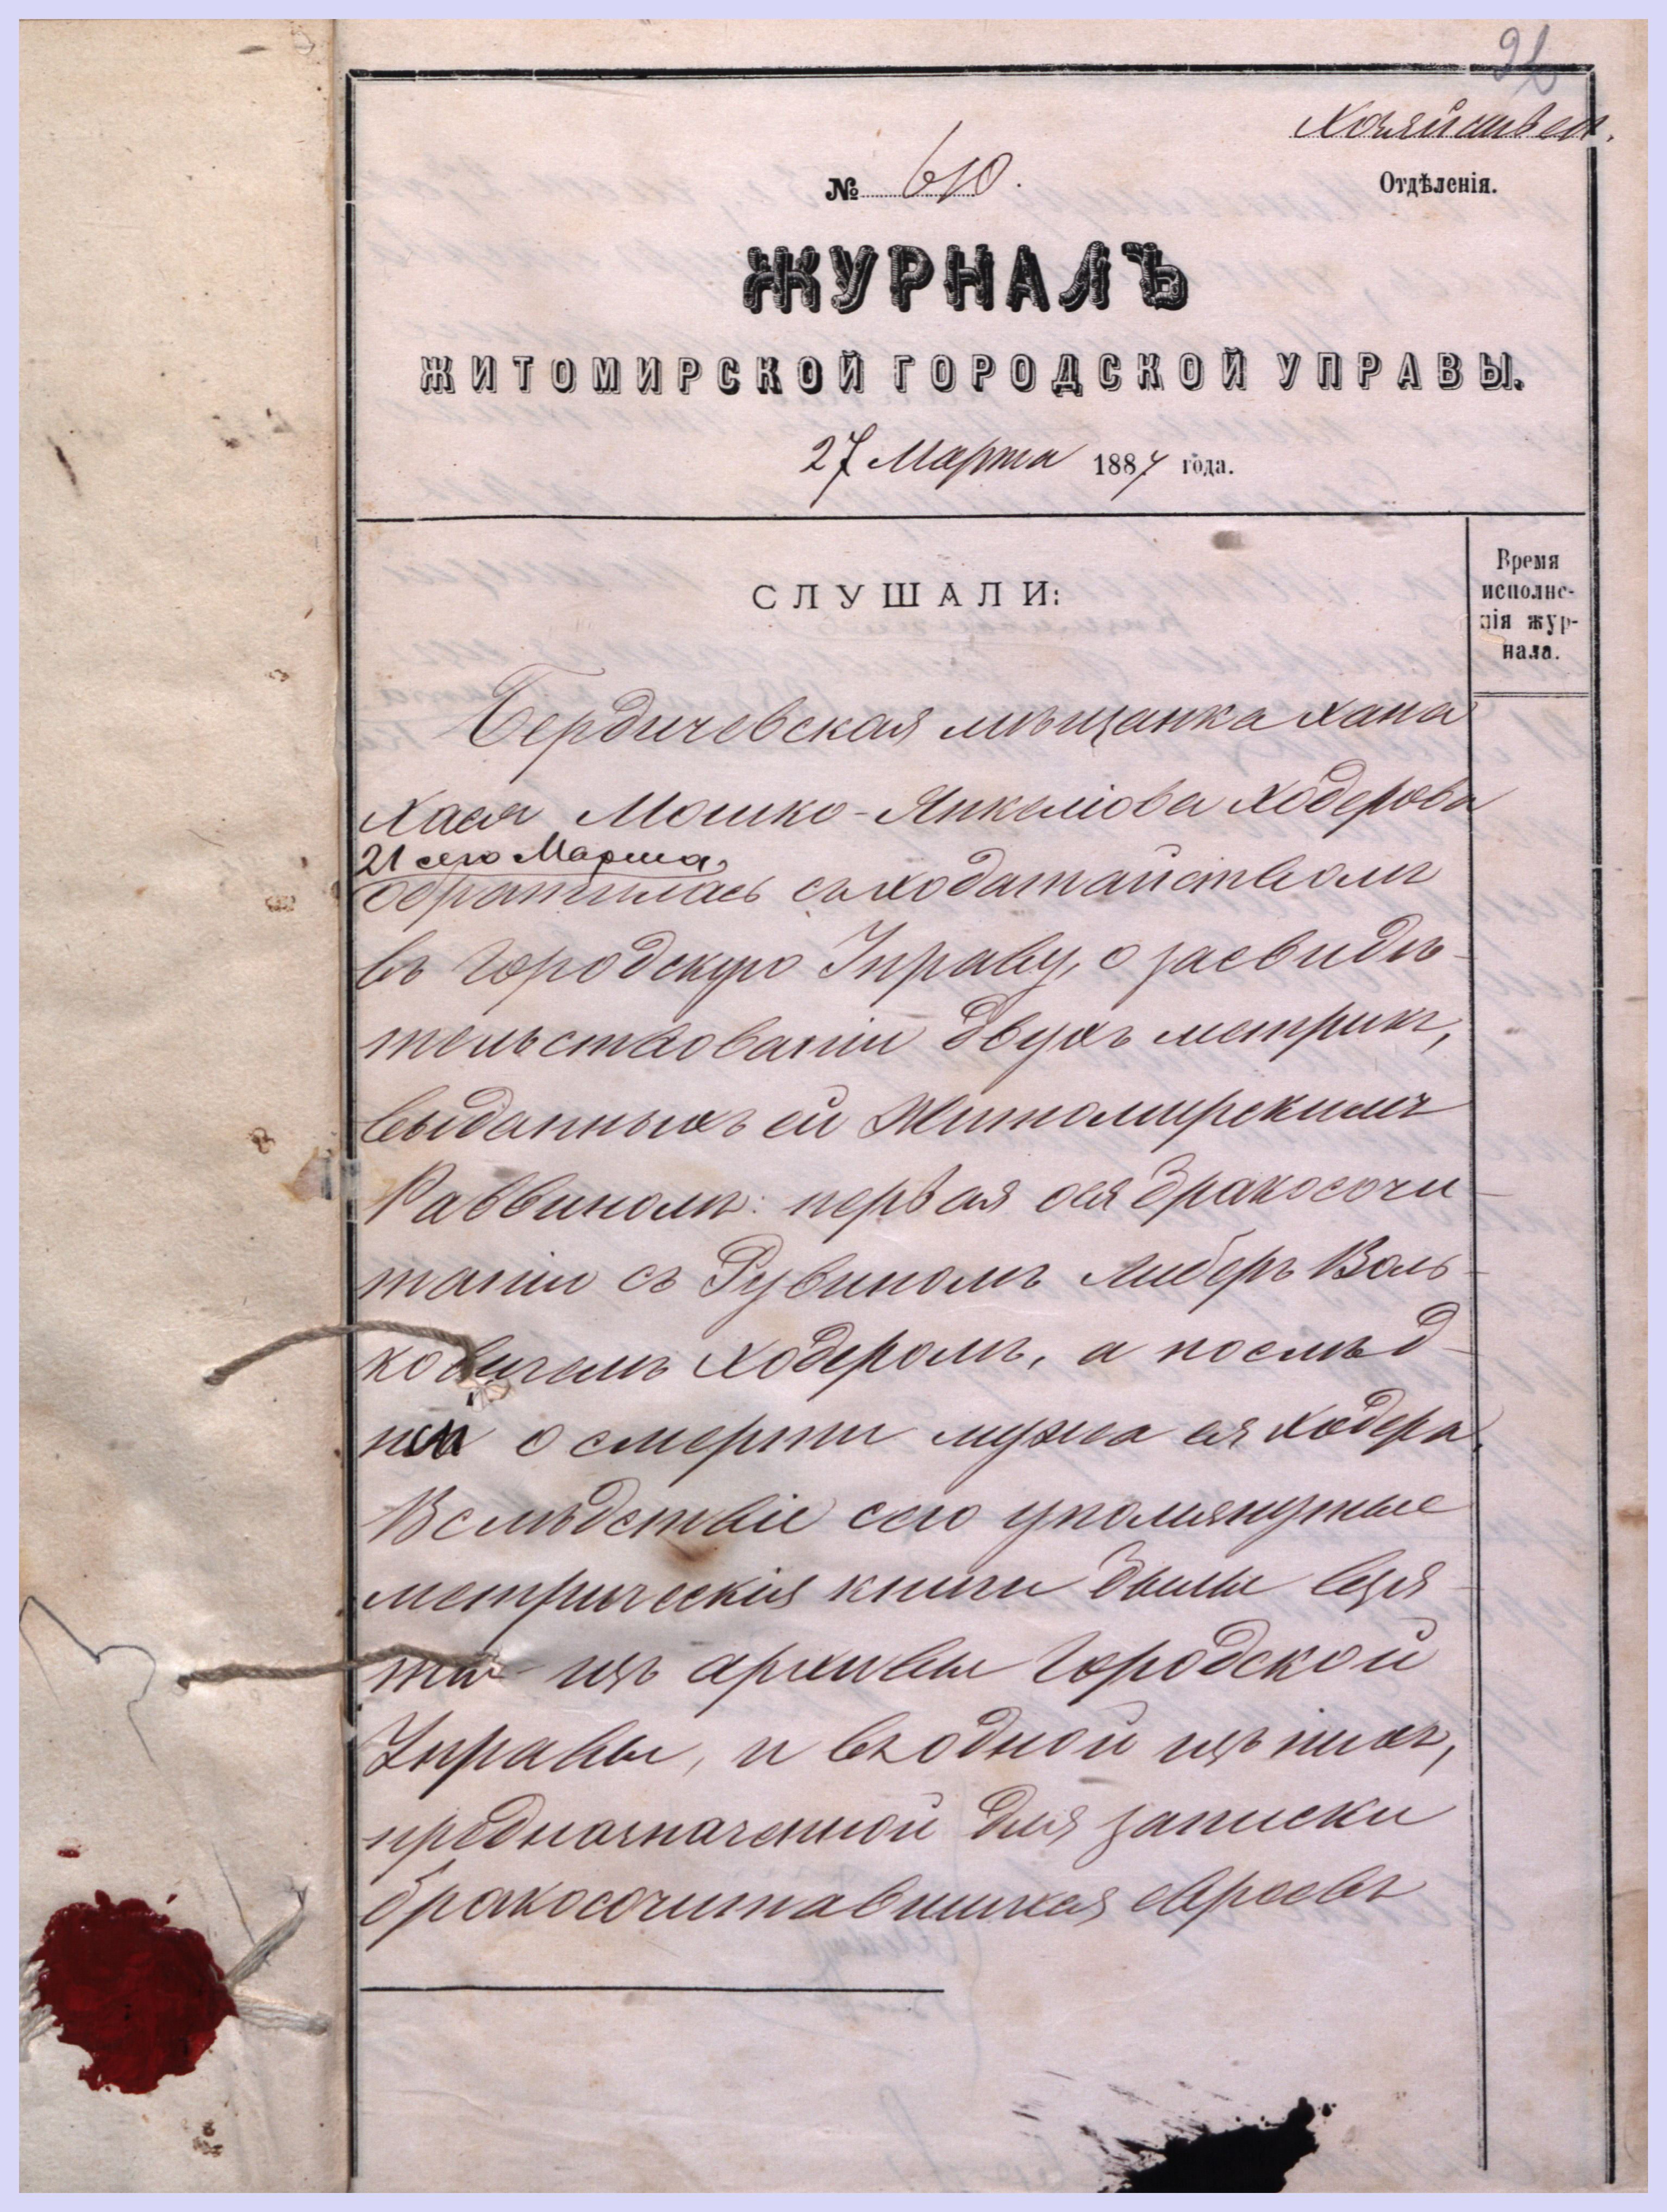 26
Хозяйствен.
Отдѣленія.
№ 610.
ЖУРНАЛЪ
ЖИТОМИРСКОЙ ГОРОДСКОЙ УПРАВЫ.
27 Марта 1887 года.
СЛУШАЛИ:
Время
исполне-
нія жур-
нала.
Бердичевская мѣщанка Хана
Хася Мошко-Янкелiова Ходерова
21 сего Марта
обратилась съ ходатайствомъ
въ Городскую Управу, о засвидѣ-
тельствованіи двухъ метрикъ,
выданныхъ ей Житомирскимъ
Раввиномъ: первая о ея бракосочи-
таніи съ Рувиномъ Либеръ Воль-
ковичемъ Ходеромъ, а послѣд-
няя о смерти мужа ея Ходера.
Вслѣдствіе сего упомянутые
метрическія книги были взя-
ты изъ архивы Городской
Управы, и въ одной изъ нихъ,
предназначенной для записки
бракосочитавшихся евреевъ